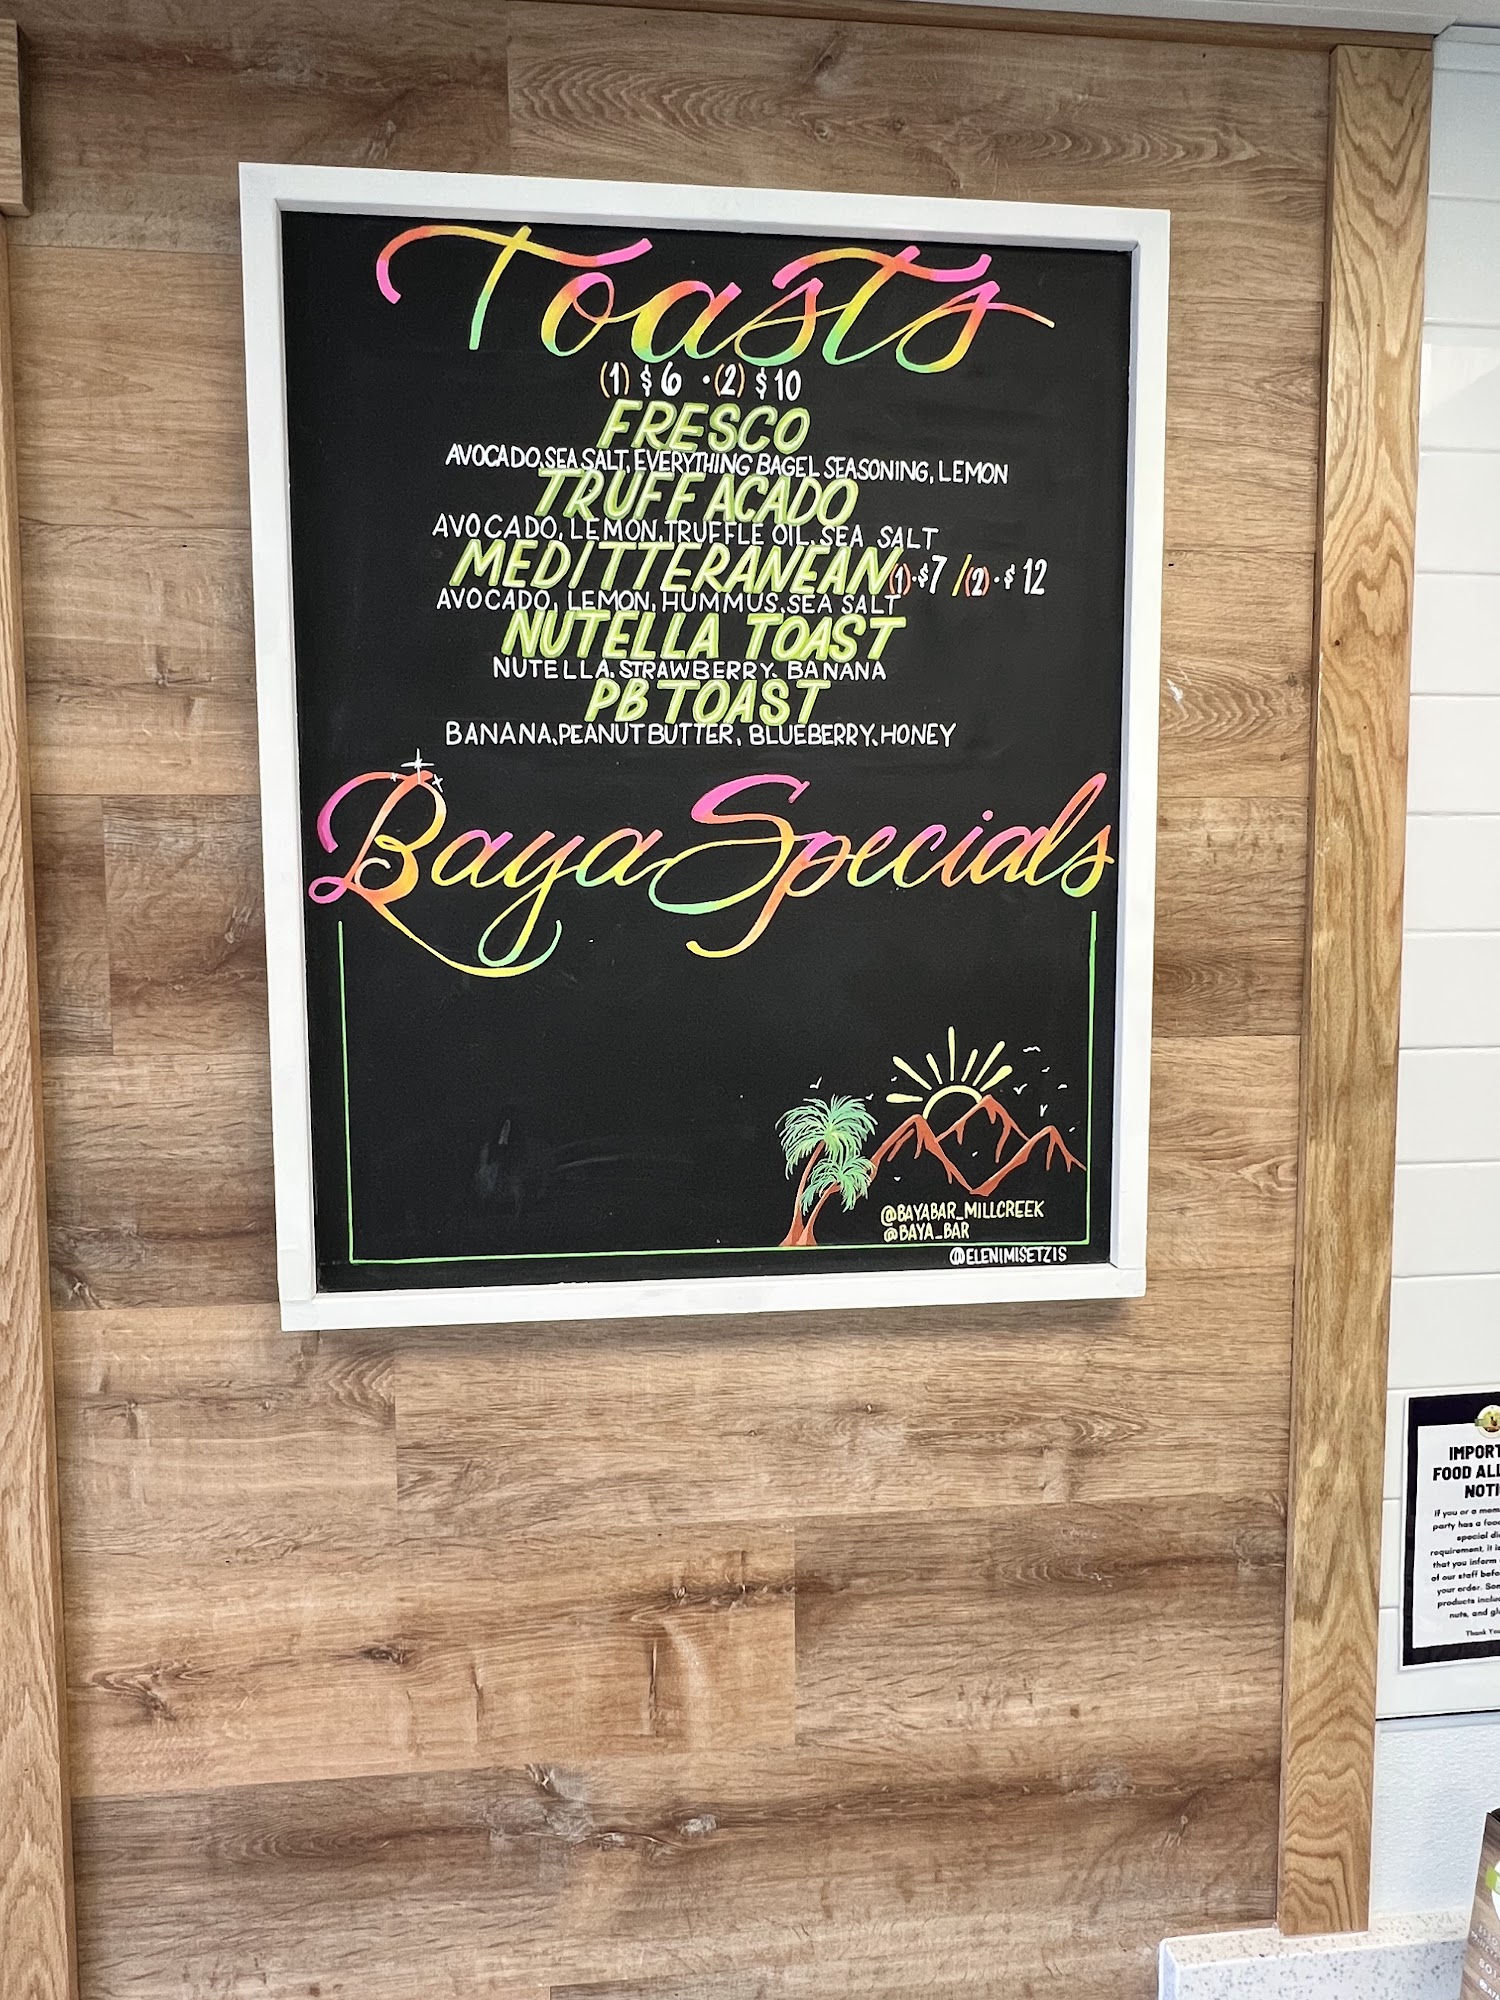 Toasts
(1) $6 • (2) $10
FRESCO
AVOCADO, SEA SALT, EVERYTHING BAGEL SEASONING, LEMON
TRUFF ACADO
AVOCADO, LEMON, TRUFFLE OIL, SEA SALT
MEDITTERANEAN (1)·$7 /(2)·$12
AVOCADO, LEMON, HUMMUS, SEA SALT
NUTELLA TOAST
NUTELLA, STRAWBERRY, BANANA
PB TOAST
BANANA, PEANUT BUTTER, BLUEBERRY, HONEY
Baya Specials
@BAYABAR_MILLCREEK
@BAYA_BAR
@ELENIMISETZIS
IMPORT
FOOD ALL
NOTI
If you or a mem
party has a foo
special di
requirement, it is
that you inform
of our staff befo
your order. Som
products inclu
nuts, and gl
Thank You